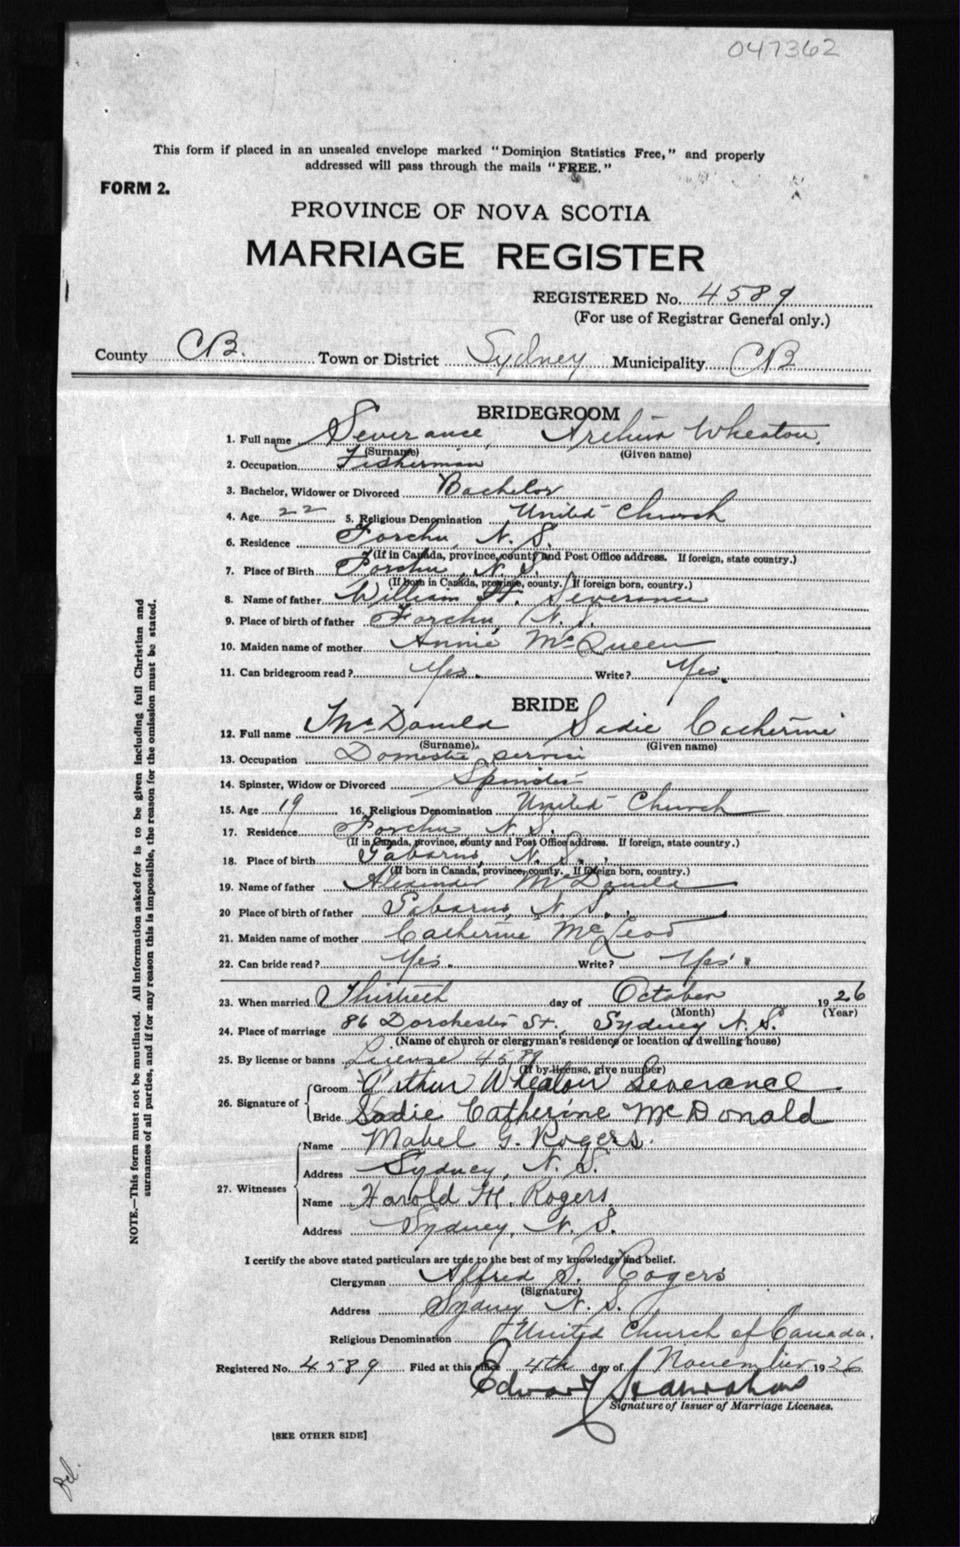 047362
This form if placed in an unsealed envelope marked "Dominion Statistics Free," and properly
addressed will pass through the mails "FREE."
FORM 2.
PROVINCE OF NOVA SCOTIA
MARRIAGE REGISTER
REGISTERED No. 4589
(For use of Registrar General only.)
County CB. Town or District Sydney Municipality CB
BRIDEGROOM
1. Full name Severance, Arthur Wheaton.
(Surname) (Given name)
2. Occupation Fisherman
3. Bachelor, Widower or Divorced Bachelor
4. Age 22 5. Religious Denomination United Church
6. Residence Forchu, N. S.
(If in Canada, province, county and Post Office address. If foreign, state country.)
7. Place of Birth Forchu, N. S.
(If born in Canada, province, county. If foreign born, country.)
8. Name of father William H. Severance
9. Place of birth of father Forchu, N. S.
10. Maiden name of mother Annie McQueen
11. Can bridegroom read? Yes. Write? Yes.
BRIDE
12. Full name McDonald Sadie Catherine
(Surname). (Given name)
13. Occupation Domestic service
14. Spinster, Widow or Divorced Spinster
15. Age 19 16. Religious Denomination United Church
17. Residence Forchu N. S.
(If in Canada, province, county and Post Office address. If foreign, state country.)
18. Place of birth Gabarus, N. S.
(If born in Canada, province, county. If foreign born, country.)
19. Name of father Alexander McDonald
20 Place of birth of father Gabarus, N. S.
21. Maiden name of mother Catherine McLeod
22. Can bride read? Yes. Write? Yes.
23. When married Thirtieth day of October 1926
(Month) (Year)
24. Place of marriage 86 Dorchester St., Sydney N. S.
(Name of church or clergyman's residence or location of dwelling house)
25. By license or banns License 4589
(If by license, give number)
26. Signature of Groom Arthur Wheaton Severance
Bride Sadie Catherine McDonald
27. Witnesses
Name Mabel G. Rogers.
Address Sydney, N. S.
Name Harold M. Rogers
Address Sydney, N. S.
I certify the above stated particulars are true to the best of my knowledge and belief.
Clergyman Alfred S. Rogers
(Signature)
Address Sydney N. S.
Religious Denomination United Church of Canada.
Registered No. 4589 Filed at this office 4th day of November 1926
Edward
Signature of Issuer of Marriage Licenses.
[SEE OTHER SIDE]
NOTE.—This form must not be mutilated. All information asked for is to be given including full Christian and
surnames of all parties, and if for any reason this is impossible, the reason for the omission must be stated.